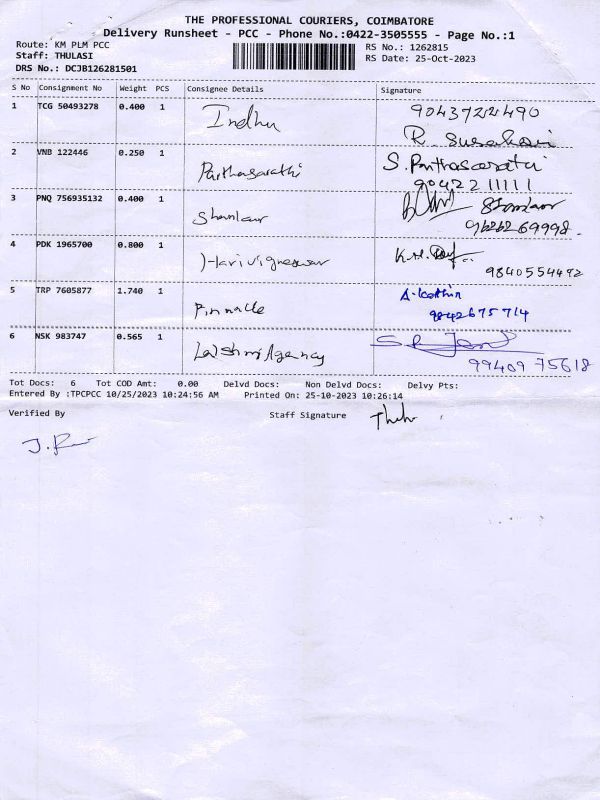 THE PROFESSIONAL COURIERS, COIMBATORE
Delivery Runsheet - PCC - Phone No.:0422-3505555 - Page No.:1
Route: KM PLM PCC
RS No.: 1262815
Staff: THULASI
RS Date: 25-Oct-2023
DRS No.: DCJB126281501
S No Consignment No Weight PCS Consignee Details Signature
1 TCG 50493278 0.400 1 Indhu 9043722490
R.
2 VNB 122446 0.250 1 Parthasarathi S. Parthasarathi
90422 11111
3 PNQ 756935132 0.400 1
96262 69998.
4 PDK 1965700 0.800 1 Harivigneswar K.M.
9840554492
5 TRP 7605877 1.740 1 Pinnacle A.
9842675714
6 NSK 983747 0.565 1 Lakshmi Agency
99409 75618
Tot Docs: 6 Tot COD Amt: 0.00 Delvd Docs: Non Delvd Docs: Delvy Pts:
Entered By :TPCPCC 10/25/2023 10:24:56 AM Printed On: 25-10-2023 10:26:14
Verified By Staff Signature